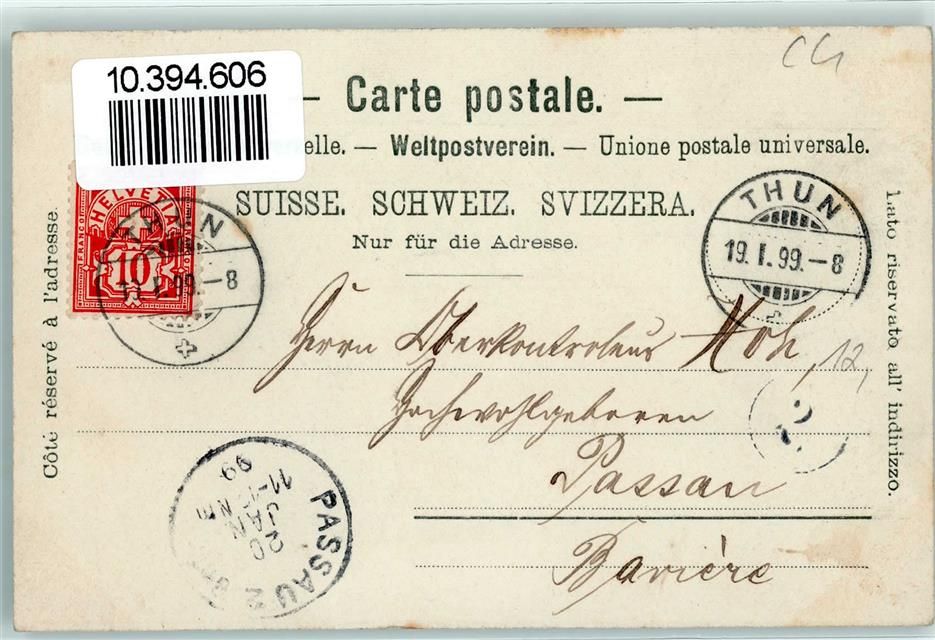 10.394.606
— Carte postale. —
elle. — Weltpostverein. — Unione postale universale.
SUISSE. SCHWEIZ. SVIZZERA.
Nur für die Adresse.
Côté réservé à l'adresse.
Lato riservato all' indirizzo.
FRANCO HELVETIA
10
THUN
I. 99.-8
THUN
19. I. 99.-8
Herrn Oberkontroleur
Hochwohlgeboren
Passau
Bavière
12,
2
PASSAU 2
20
JAN
11-12 NM
99